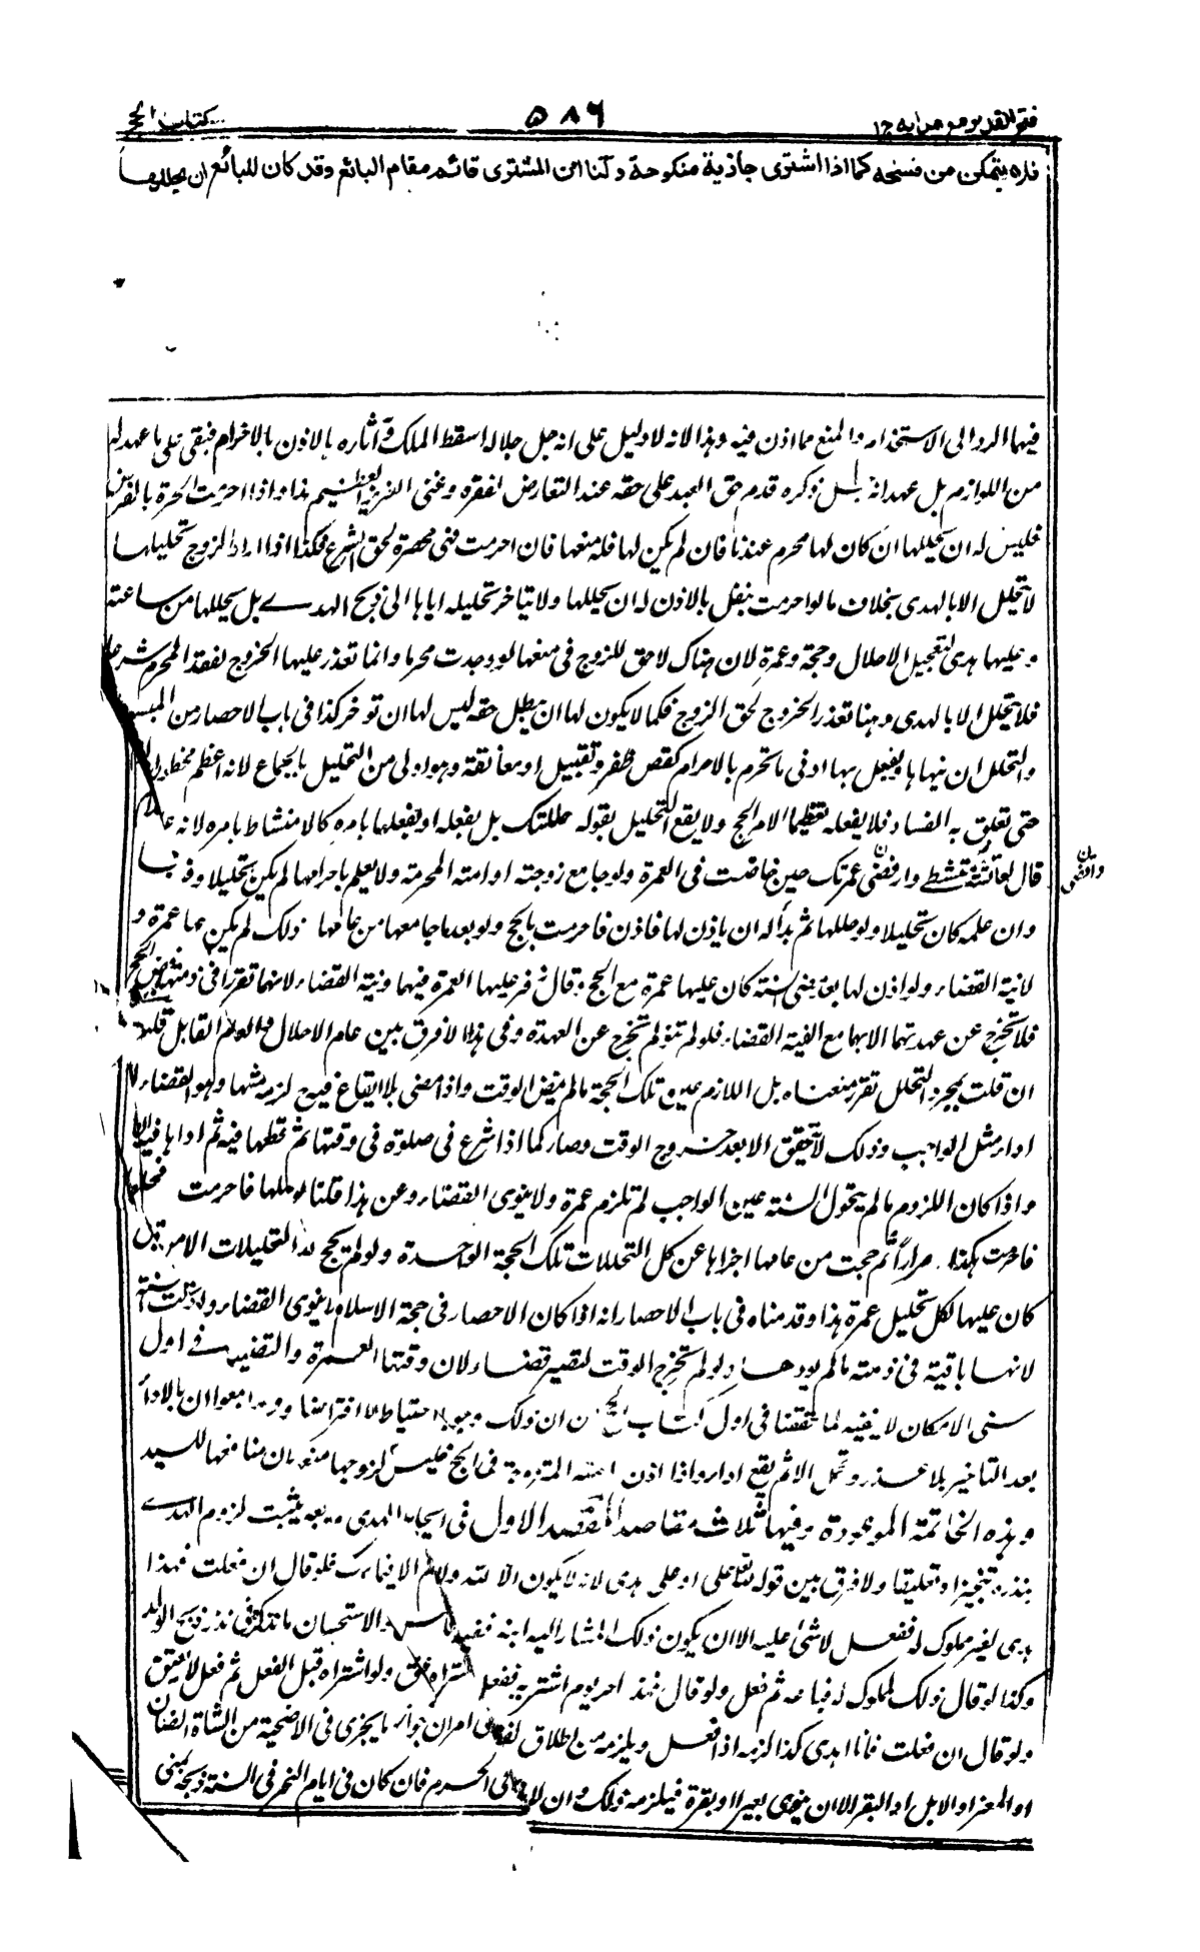 فتح القدير مع هداية ج١
٥٨٦
كتاب الحج
فلا يتمكن من فسخه كما اذا اشترى جارية منكوحة ولنا ان المشترى قائم مقام البائع وقد كان للبائع ان يحللها
فيها الرد الى الاستخدام والمنع مما اذن فيه وهذا لانه لا دليل على انه جل جلاله اسقط الملك وآثاره بالاذن بالاحرام فبقى على ما عهد له
من اللوازم بل عهد انه جل ذكره قدم حق العبد على حقه عند التعارض لفقره وغنى العزيز العظيم هذا واذا احرمت الحرة بالفرض
فليس له ان يحللها ان كان لها محرم عندنا فان لم يكن لها فله منعها فان احرمت فهى محصرة لحق الشرع فلذا اذا اراد الزوج تحليلها
لا تتحلل الا بالهدى بخلاف ما لو احرمت بنفل بلا اذن له ان يحللها ولا يتاخر تحليله اياها الى ذبح الهدى بل يحللها من ساعته
وعليها هدى لتعجيل الاحلال وحجة وعمرة لان هناك لا حق للزوج فى منعها لو وجدت محرما وانما تعذر عليها الخروج لفقد المحرم شرعا
فلا تتحلل الا بالهدى وهنا تعذر الخروج لحق الزوج فكما لا يكون لها ان يبطل حقه ليس لها ان تؤخر كذا فى باب الاحصار من المبسوط
والتحلل ان ينهاها ويفعل بها ادنى ما تحرم بالاحرام كقص ظفر وتقبيل او معانقة وهو اولى من التحليل بالجماع لانه اعظم محظورات
حتى تعلق به الفساد فلا يفعله تعظيما لامر الحج ولا يقع التحليل بقوله حللتك بل بفعله او بفعلها بامره كالامتشاط بامره لانه
قال لعائشة امتشطى وارفضى عمرتك حين حاضت فى العمرة ولو جامع زوجته او امته المحرمة ولا يعلم باحرامها لم يكن تحليلا وفسد
وان علمه كان تحليلا ولو حللها ثم بدأ له ان ياذن لها فاذن فاحرمت بالحج ولو بعد ما جامعها من عامها ذلك لم يكن عليها عمرة و
لا نية القضاء ولو اذن لها بعد مضى السنة كان عليها عمرة مع الحج وقال زفر عليها العمرة فيهما ونية القضاء لانهما تقررا فى ذمتها
فلا تخرج عن عهدتهما الا بهما مع نية القضاء فلو لم تنو لم تخرج عن العهدة وفى هذا لا فرق بين عام الاحلال والعام القابل قلنا
ان قلت بمجرد التحلل تقرر منعناه بل اللازم عين تلك الحجة ما لم يمض الوقت واذا مضى بلا ايقاع فيه لزم مثلها وهو القضاء لا
اداء مثل الواجب وذلك لا يتحقق الا بعد خروج الوقت وصار كما اذا شرع فى صلوة فى وقتها ثم قطعها فيه ثم اداها فيه
واذا كان اللزوم ما لم يتحول السنة عين الواجب لم تلزم عمرة ولا ينوى القضاء وعن هذا قلنا لو حللها فاحرمت فحللها
فاحرمت هكذا مرارا ثم حجت من عامها اجزاها عن كل التحللات تلك الحجة الواحدة ولو لم يحج بعد التحليلات الا من قابل
كان عليها لكل تحليل عمرة هذا وقدمناه فى باب الاحصار انه اذا كان الاحصار فى حجة الاسلام لا ينوى القضاء ولو تحولت السنة
لانها باقية فى ذمته ما لم يودها ولو لم تخرج الوقت لتصير قضاء لان وقتها العمرة والتضييق فى اول
سنى الامكان لا ينفيه لما حققنا فى اول كتاب الحج من ان ذلك وجوبه احتياط لا افتراضا
بعد التاخير بلا عذر وتحمل الاثم يقع اداء واذا اذن لامته المتزوجة فى الحج فليس لزوجها منعها لان منافعها للسيد
وهذه الخاتمة الموعودة وفيها ثلاث مقاصد المقصد الاول فى ايجاب الهدى وما يتبعه يثبت لزوم الهدى
بنذره تنجيزا او تعليقا ولا فرق بين قوله لله على او على هدى لانه لا يكون الا لله فلو قال ان فعلت فهذا
هدى لغير مملوك له ففعل لا شئ عليه الا ان يكون ذلك المشار اليه ابنه ففيه القياس والاستحسان ما نذكر فى نذر ذبح الولد
وكذا لو قال ذلك لمملوك له فباعه ثم فعل ولو قال فهذا حر يوم اشتريه ففعل اشتراه عتق ولو اشتراه قبل الفعل ثم فعل لا يعتق
ولو قال ان فعلت فانا اهدى كذا لزمه اذا فعل ويلزمه من اطلاق لفظ الهدى ما يجزى فى الاضحية من الشاة الضان
او المعز او الابل او البقر الا ان ينوى بعيرا او بقرة فيلزمه ذلك وان لا فى الحرم فان كان فى ايام النحر فى السنة ذبحه بمنى